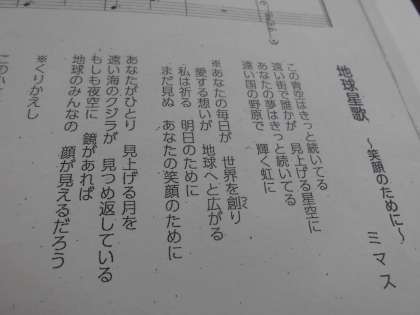 地球星歌 ～笑顔のために～
ミマス
この青空はきっと続いてる
遠い街で誰かが 見上げる星空に
あなたの夢はきっと続いてる
遠い国の野原で 輝く虹に
※あなたの毎日が 世界を創り
つく
愛する想いが 地球へと広がる
私は祈る 明日のために
まだ見ぬ あなたの笑顔のために
あなたがひとり 見上げる月を
遠い海のクジラが 見つめ返している
もしも夜空に 鏡があれば
地球のみんなの 顔が見えるだろう
※くりかえし